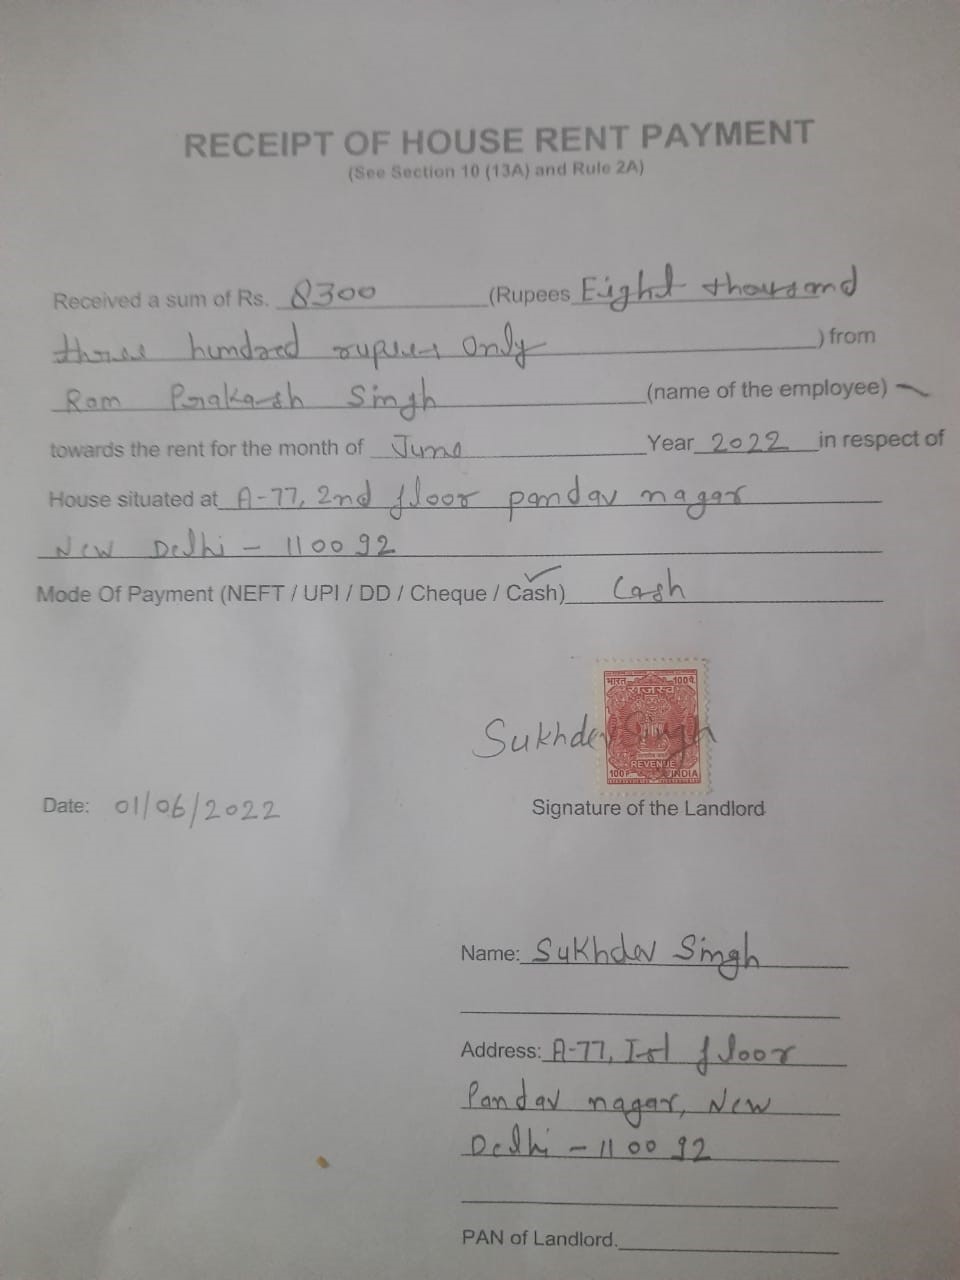 RECEIPT OF HOUSE RENT PAYMENT
(See Section 10 (13A) and Rule 2A)
Received a sum of Rs. 8300 (Rupees Eight thousand
three hundred rupees Only ) from
Ram Prakash Singh (name of the employee)
towards the rent for the month of June Year 2022 in respect of
House situated at A-77, 2nd floor pandav nagar
New Delhi - 110092
Mode Of Payment (NEFT / UPI / DD / Cheque / Cash) Cash
भारत 100 पै.
राजस्व
Sukhdev Singh
REVENUE
100 P INDIA
Date: 01/06/2022
Signature of the Landlord
Name: Sukhdev Singh
Address: A-77, Ist floor
Pandav nagar, New
Delhi - 110092
PAN of Landlord.